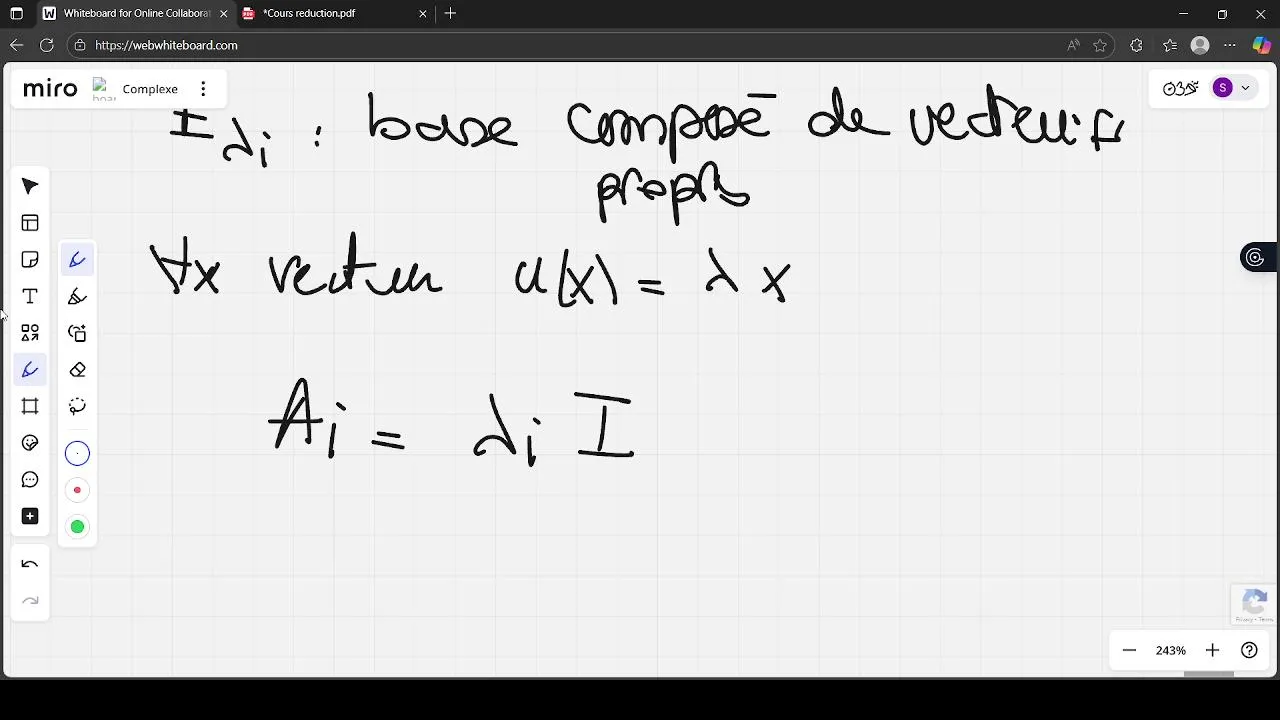 Whiteboard for Online Collaborat
*Cours reduction.pdf
https://webwhiteboard.com
miro Complexe S
I λi : base composé de vecteurs
propres
∀x vecteur u(x) = λ x
Ai = λi I
Privacy - Terms
243%